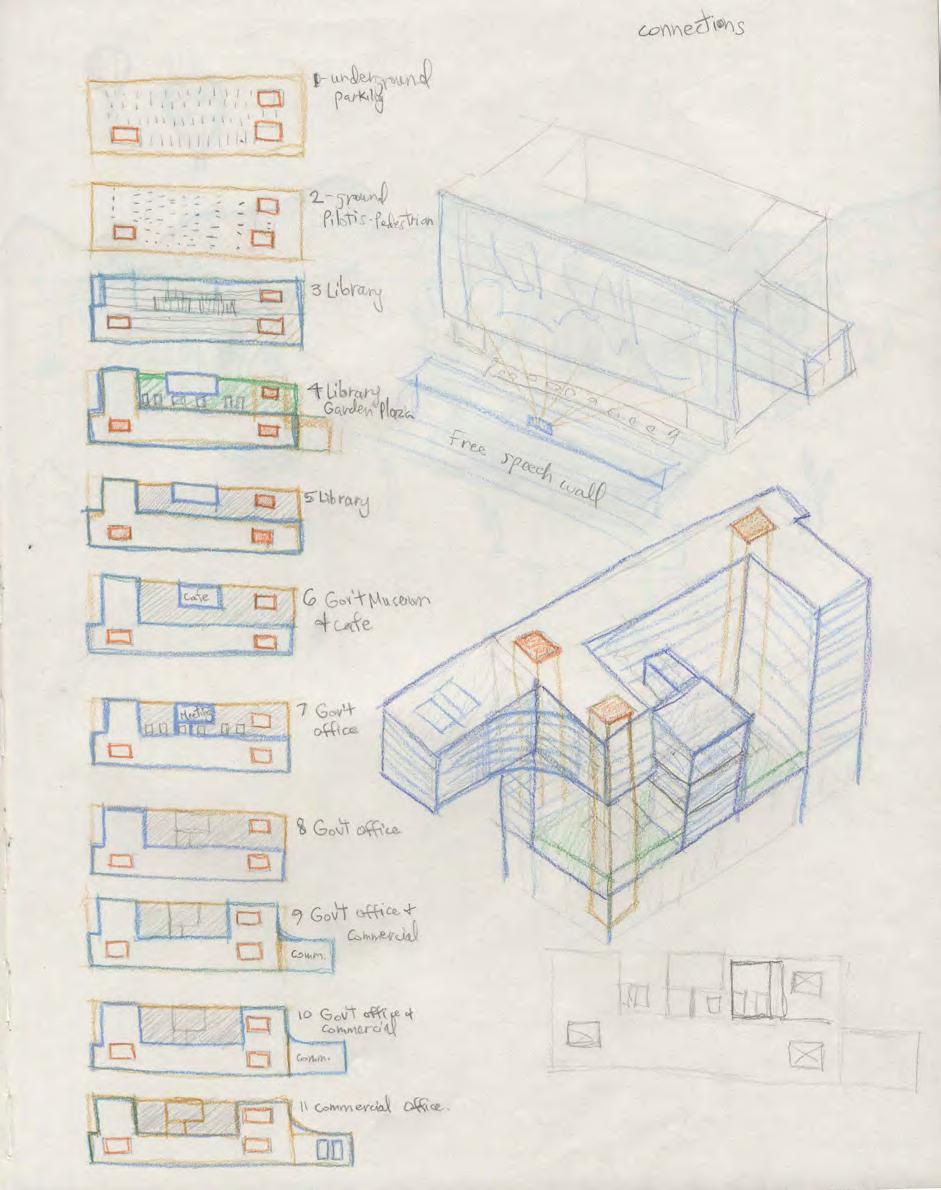 connections
1-underground
parking
2-ground
Pilotis-Pedestrian
3 Library
4 Library
Garden Plaza
Free speech wall
5 Library
6 Gov't Museum
& Cafe
Cafe
7 Gov't
office
Meeting
8 Gov't office
9 Gov't office &
Commercial
Comm.
10 Gov't office &
commercial
Comm.
11 commercial office.